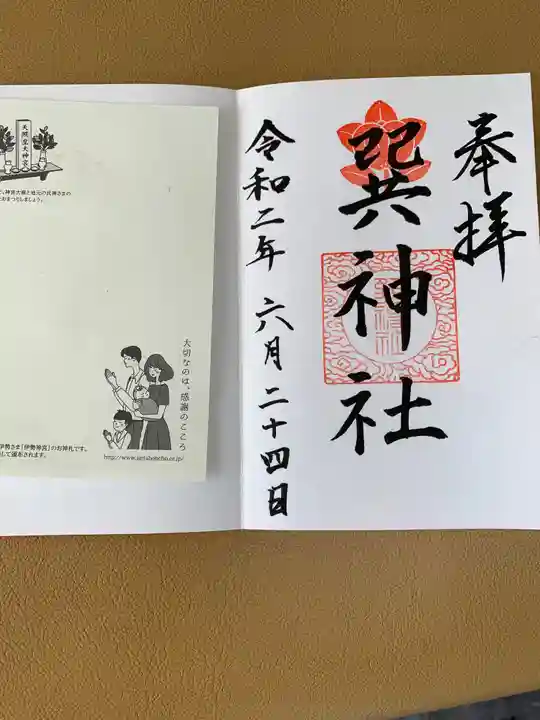 奉拝
巽神社
令和二年 六月二十四日
天照皇大神宮
、神宮大麻と地元の氏神さまの
とおまつりしましょう。
大切なのは、感謝のこころ
http://www.jinjahoncho.or.jp/
伊勢さま「伊勢神宮」のお神札です。
して頒布されます。